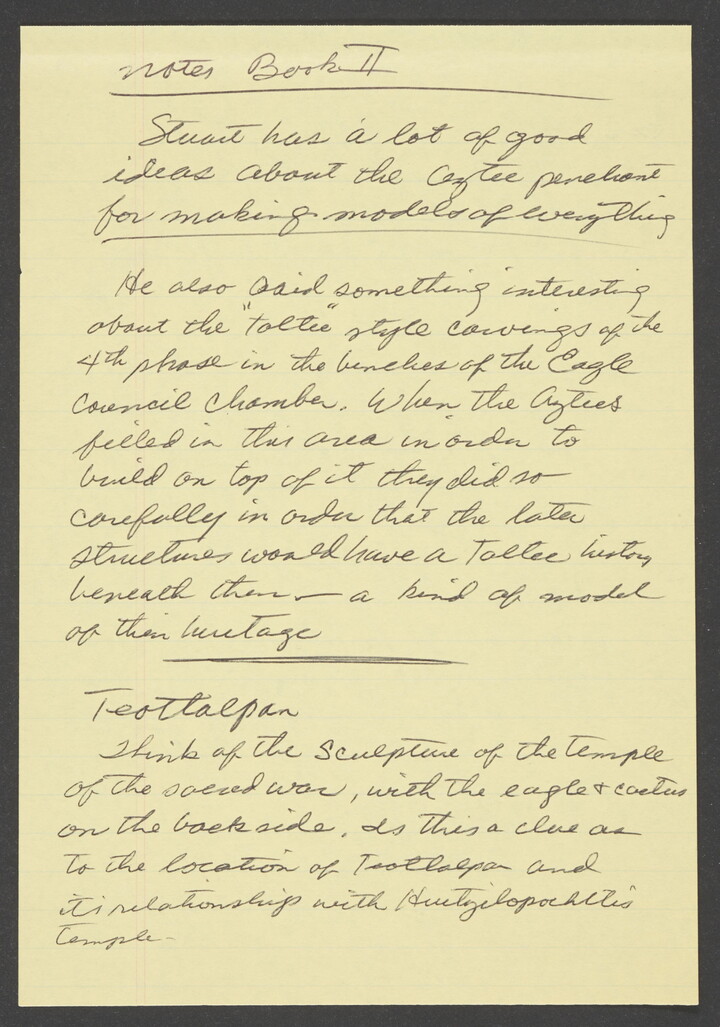 Notes Book II
Stuart has a lot of good
ideas about the Aztec penchant
for making models of everything
He also said something interesting
about the "Toltec" style carvings of the
4th phase in the benches of the Eagle
Council Chamber. When the Aztecs
filled in this area in order to
build on top of it they did so
carefully in order that the later
structures would have a Toltec history
beneath them — a kind of model
of their heritage
Teotlalpan
Think of the Sculpture of the temple
of the sacred war, with the eagle & cactus
on the back side. Is this a clue as
to the location of Teotlalpan and
it's relationship with Huitzilopochtli's
temple -